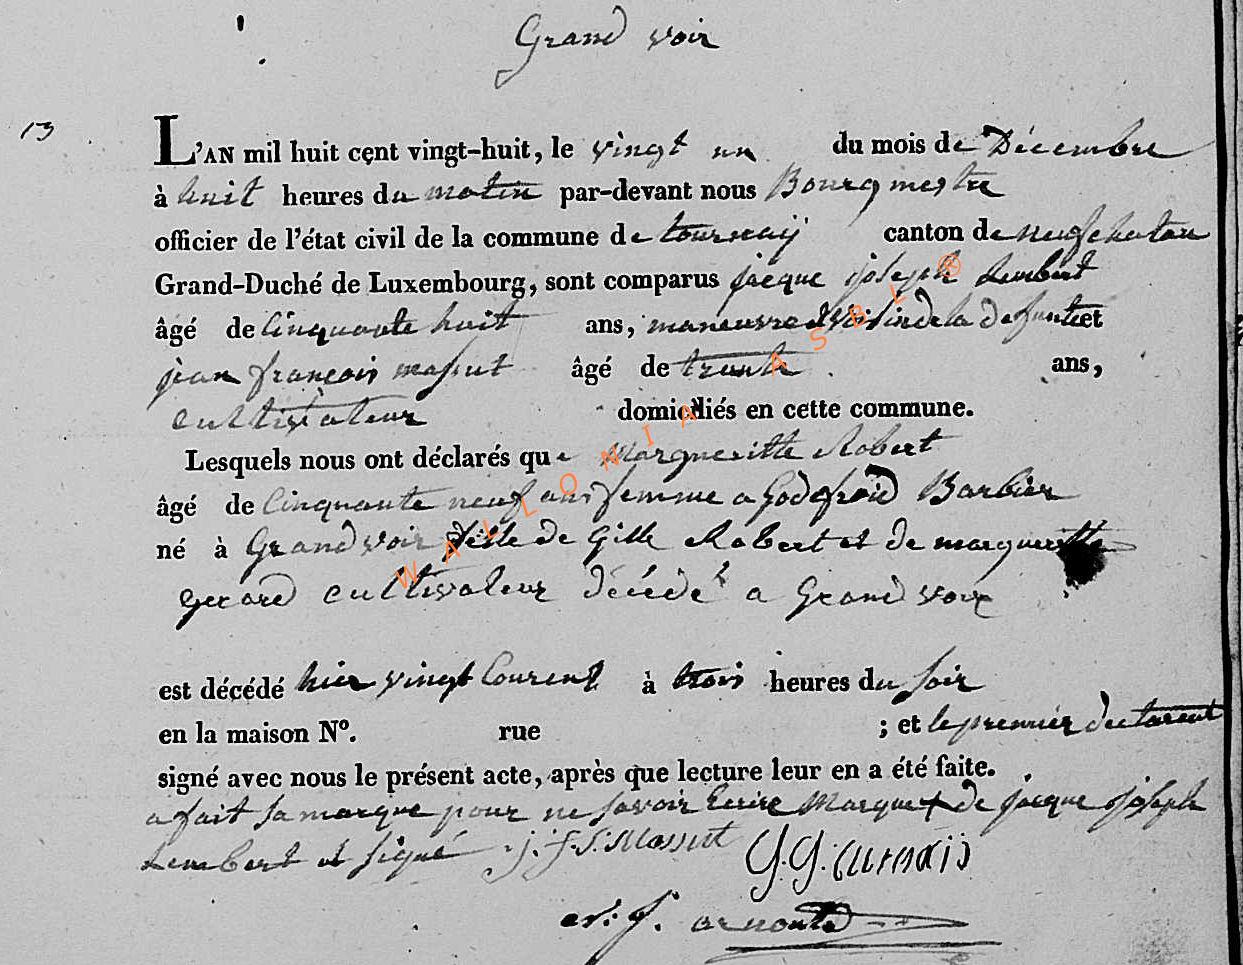 Grand voir
13
L'AN mil huit cent vingt-huit, le vingt un du mois de Décembre
à huit heures du matin par-devant nous Bourgmestre
officier de l'état civil de la commune de tournaÿ canton de neufchateau
Grand-Duché de Luxembourg, sont comparus jacque joseph Lambert
âgé de Cinquante huit ans, maneuvre et Voisin de la defunte et
jean francois massut âgé de trente ans,
cultivateur domiciliés en cette commune.
Lesquels nous ont déclarés que Margueritte Robert
âgé de Cinquante neuf ans femme a Godefroid Barbier
né à Grand voir fille de Gille Robert et de margueritte
Gerard cultivateur décédé a Grand voir
est décédé hier vingt Courent à trois heures du soir
en la maison N°. rue ; et le premier declarent
signé avec nous le présent acte, après que lecture leur en a été faite.
a fait sa marque pour ne savoir Ecrire Marque + de jacque joseph
Lambert et signé j. f. S. Massut G. G.
arnould
WALLONIA ASBL ®